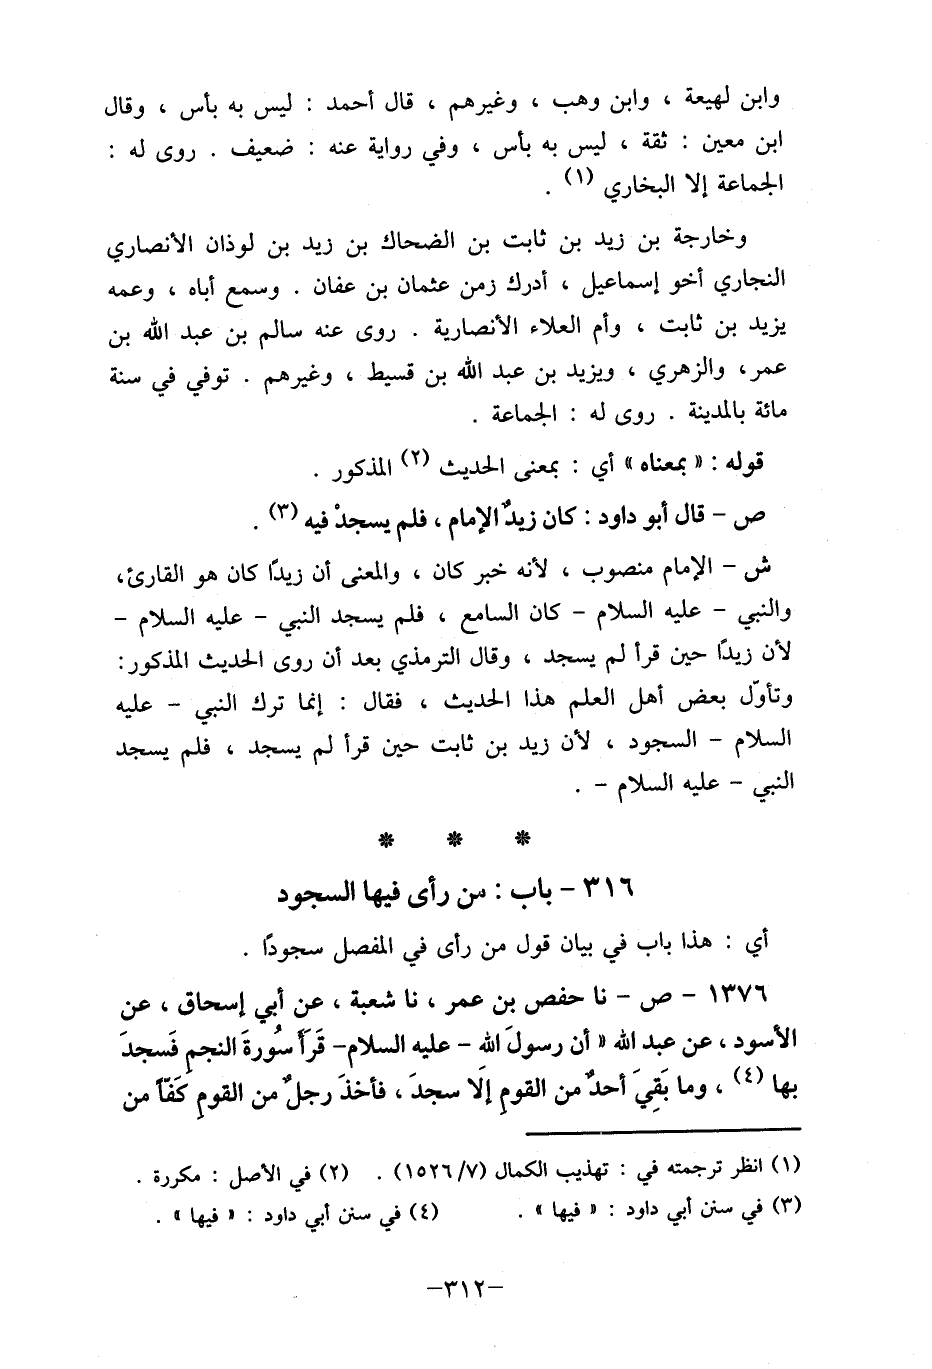 وابن لهيعة ، وابن وهب ، وغيرهم ، قال أحمد : ليس به بأس ، وقال
ابن معين : ثقة ، ليس به بأس ، وفي رواية عنه : ضعيف . روى له :
الجماعة إلا البخاري (١) .
وخارجة بن زيد بن ثابت بن الضحاك بن زيد بن لوذان الأنصاري
النجاري أخو إسماعيل ، أدرك زمن عثمان بن عفان . وسمع أباه ، وعمه
يزيد بن ثابت ، وأم العلاء الأنصارية . روى عنه سالم بن عبد الله بن
عمر، والزهري ، ويزيد بن عبد الله بن قسيط ، وغيرهم . توفي في سنة
مائة بالمدينة . روى له : الجماعة .
قوله : « بمعناه » أي : بمعنى الحديث (٢) المذكور .
ص – قال أبو داود : كان زيدٌ الإمام ، فلم يسجدْ فيه (٣) .
ش – الإمام منصوب ، لأنه خبر كان ، والمعنى أن زيدًا كان هو القارئ،
والنبي – عليه السلام – كان السامع ، فلم يسجد النبي – عليه السلام –
لأن زيدًا حين قرأ لم يسجد ، وقال الترمذي بعد أن روى الحديث المذكور:
وتأوّل بعض أهل العلم هذا الحديث ، فقال : إنما ترك النبي – عليه
السلام – السجود ، لأن زيد بن ثابت حين قرأ لم يسجد ، فلم يسجد
النبي – عليه السلام – .
* * *
٣١٦ – باب : من رأى فيها السجود
أي : هذا باب في بيان قول من رأى في المفصل سجودًا .
١٣٧٦ – ص – نا حفص بن عمر ، نا شعبة ، عن أبي إسحاق ، عن
الأسود ، عن عبد الله « أن رسولَ الله – عليه السلام– قَرَأَ سُورةَ النجمِ فَسجدَ
بها (٤) ، وما بَقِيَ أحدٌ من القومِ إلا سجدَ ، فأخذَ رجلٌ من القومِ كَفّا من
(١) انظر ترجمته في : تهذيب الكمال (٧/ ١٥٢٦) . (٢) في الأصل : مكررة .
(٣) في سنن أبي داود : « فيها » . (٤) في سنن أبي داود : « فيها » .
–٣١٢–